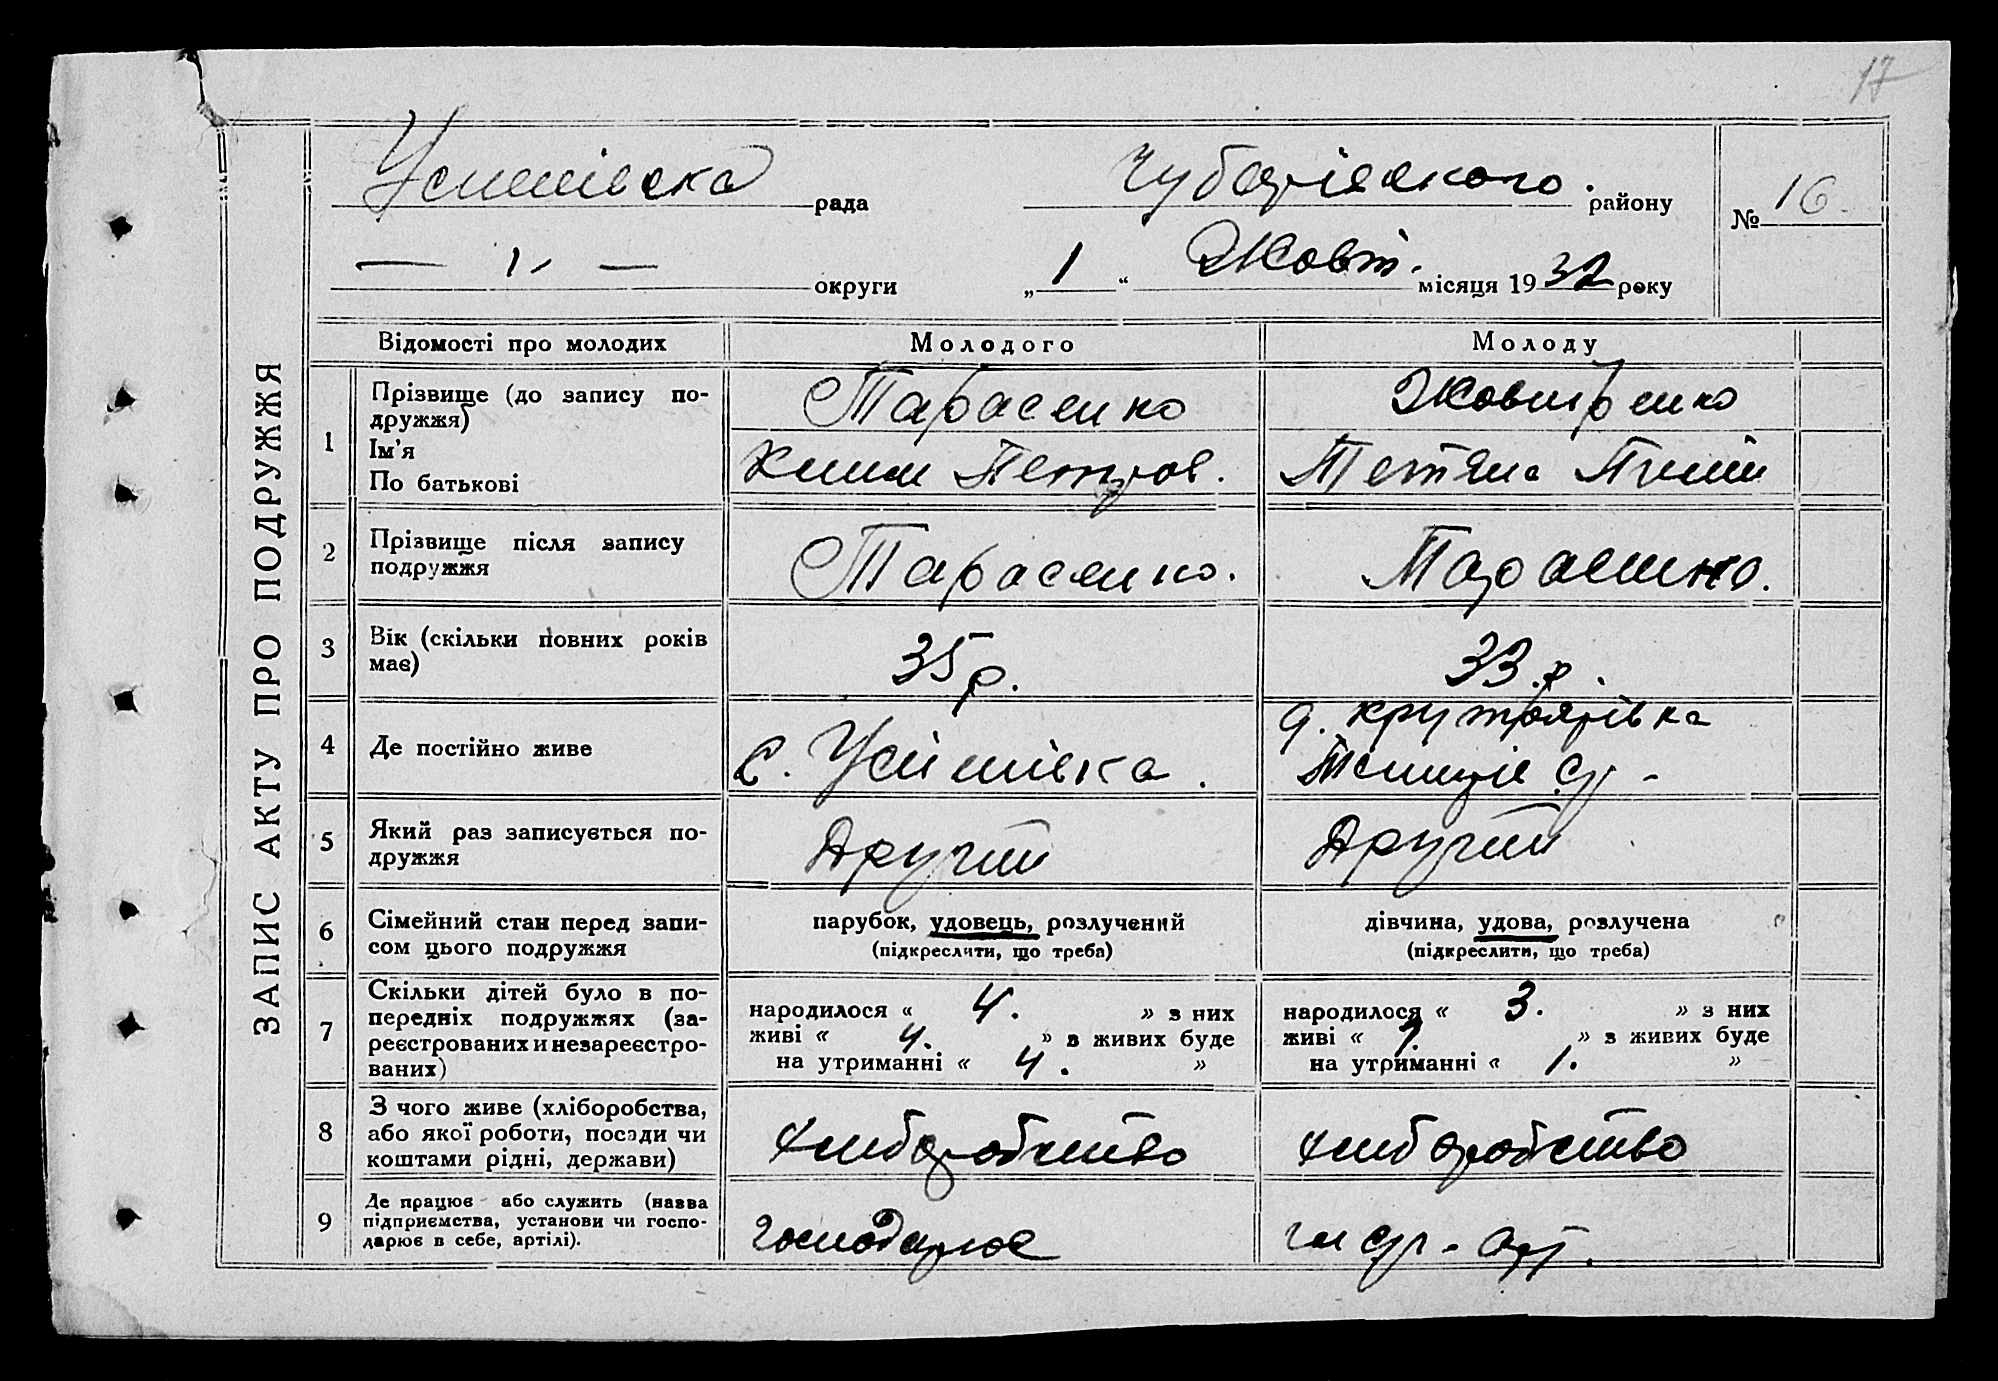 17
ЗАПИС АКТУ ПРО ПОДРУЖЖЯ
Успенівска рада Чубарівского. району № 16.
— 1, — округи „ 1 “ Жовт. місяця 1932 року
Відомості про молодих Молодого Молоду
1 Прізвище (до запису по-
дружжя) Тарасенко Жовтенко
Ім'я
По батькові Петров. Тетяна
2 Прізвище після запису
подружжя Тарасенко. Тарасенко.
3 Вік (скільки повних років
має) 35 р. 33.р.
4 Де постійно живе с. Успінівка. д. Крутоярівка
5 Який раз записується по-
дружжя Другий Другий
6 Сімейний стан перед запи-
сом цього подружжя
парубок, удовець, розлучений дівчина, удова, розлучена
(підкреслити, що треба) (підкреслити, що треба)
7 Скільки дітей було в по-
передніх подружжях (за-
реєстрованих и незареєстро-
ваних)
народилося « 4. » з них
живі « 4. » з живих буде
на утриманні « 4. »
народилося « 3. » з них
живі « 1. » з живих буде
на утриманні « 1. »
8 З чого живе (хліборобства,
або якої роботи, посади чи
коштами рідні, держави) хліборобство хліборобство
9 Де працює або служить (назва
підприємства, установи чи госпо-
дарює в себе, артілі).
господарює